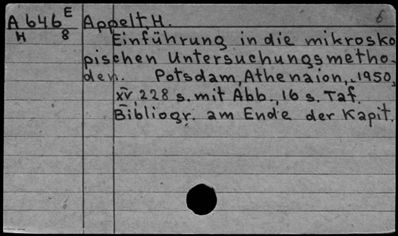 6
A 646 E Appelt, H.
H 8 Einführung in die mikrosko
pischen Untersuchungsmetho-
den. Potsdam, Athenaion, 1950,
XV, 228 s. mit Abb., 16 s. Taf.
Bibliogr. am Ende der Kapit.